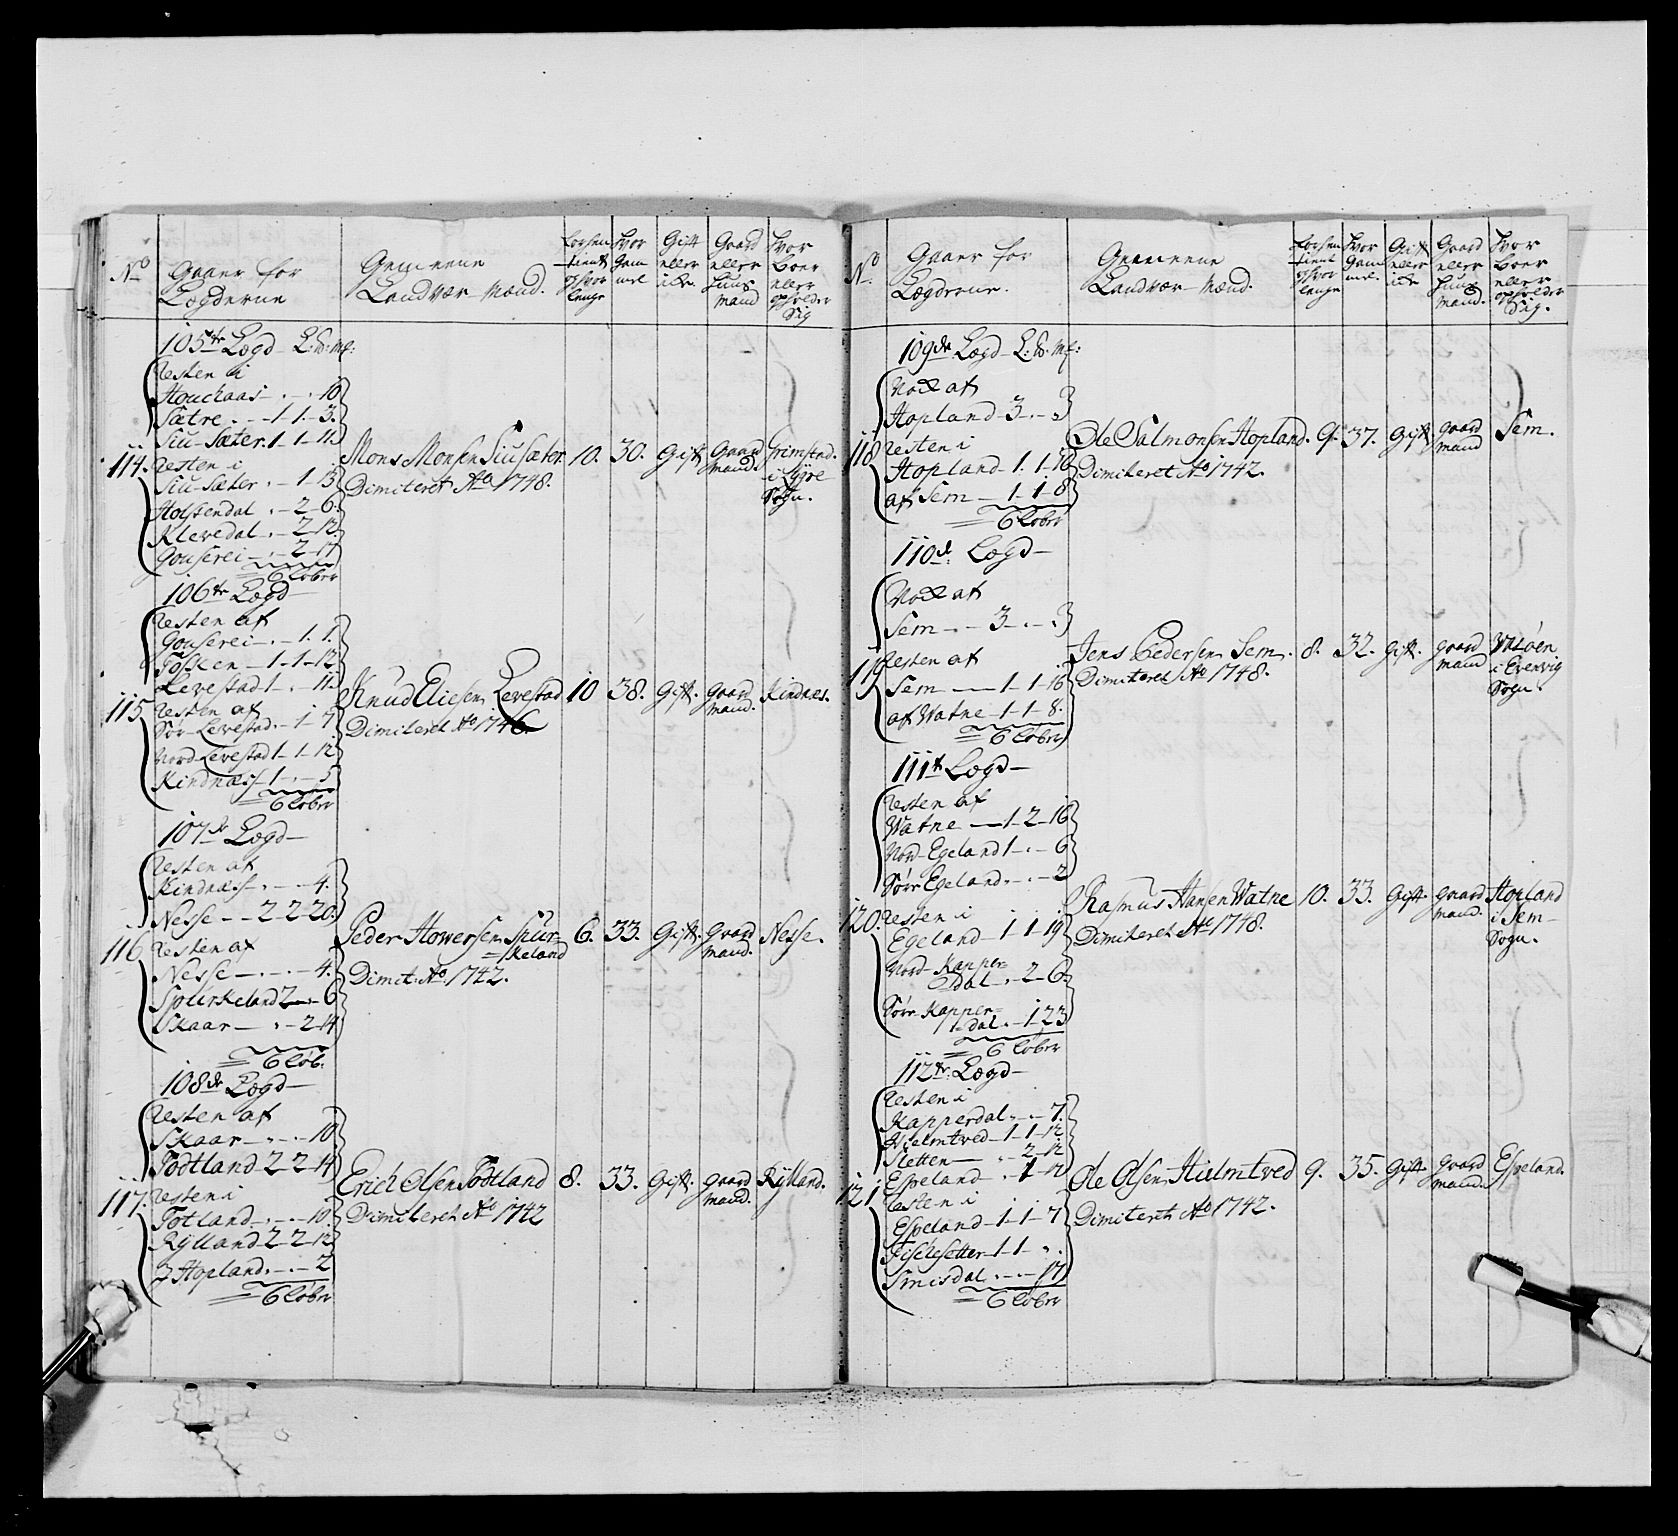 No
Gaaer for
Lægderne
Gemeene
Landvær Mænd.
hvor
Gam
mel.
Gift
eller
icke.
Gaard
eller
Huus
mand
Hvor
boer
eller
opholder
Sig
105te Lægd L: S: Mf:
Resten i
Houckaas - . - . 10
Sætre . . - 1 - 1 - 3.
Siu-Sæter. 1 - 1 - 11.
114.
Resten i
Siu-Sæter . - 1 - 13
Holsendal . - 2 - 6.
Klevedal . - 2 - 12.
Gouserei - . - 2 - 17
6 Løber
Mons Monsen Siu Sæter
Dimiteret Ao 1748.
10.
30.
Gift
Gaard
mand.
Grimstad.
i Lÿgre
Sogn.
106te Lægd
Resten af
Gouserei - . - 1. 1.
Fosken - 1 - 1 - 12
Levestad 1 - . 11.
115
Resten af
Sør-Levestad . - 1 - 7
Nord Levestad 1 - 1 - 12
Kindnæss 1 - . - 5
6 Løber
Knud Eliesen Levestad
Dimiteret Ao 1746.
10
38.
Gift.
gaard
mand.
Kindnes.
107de Lægd
Resten af
Kindnæss - . - . - 4.
Nesse - - 2 - 2 - 20.
116
Resten af
Nesse - . - . - 4.
Spurkeland 2 - . - 6
Skaar - . - 2 - 14
6 Løb.
Peder Howersen Spur=
=keland
Dimit: Ao 1742.
6.
33.
Gift.
Gaard
mand.
Nesse.
108de Lægd
Resten af
Skaar - . - . - 10
Todtland 2 - 2 - 14
117.
Resten i
Totland - . - . - 10.
Rÿlland 2 - 2 - 12
I Hopland . - . - 2
6 Løber
Erich Olsen Todtland
Dimiteret Ao 1742
8.
33.
Gift.
gaard
mand.
Rÿlland.
No
Gaaer for
Lægderne.
Gemeene
Landvær Mænd.
Hvor
Gam
mel.
Gift
eller
icke
Gaard
eller
Huus
mand.
Hvor
boer
eller
opholder
Sig.
109de Lægd L: S: Mf:
Nock af
Hopland 3 . - .
118
Resten i
Hopland 1. 1 - 16
af Sem - 1 - 1 - 8
6 Løber
Ole Salmonsen Hopland.
Dimiteret Ao 1742.
9.
37.
Gift
gaard
mand
Sem.
110de Lægd
Nock af
Sem . - . 3 - . - .
119
Resten af
Sem - 1 - 1 - 16
af Watne - 1 - 1 - 8.
6 Løber
Jens Pedersen Sem.
Dimiteret Ao 1748.
8.
32.
Gift.
gaard
mand
i Evenvig
Sogn.
111te Lægd
Resten af
Watne - 1 - 2 - 16
Nord-Egeland 1 - . - 6
Sør Egeland . - . - 2
120.
Resten i
Egeland - 1 - 1 - 19
Nord-Kapper=
dal . - 2 - 6.
Sør-Kapper=
dal . - 1 - 23
6 Løber
Rasmus Hansen Watne
Dimiteret Ao 1748.
10.
33.
Gift.
gaard
mand.
Hopland
i Sem-
Sogn.
112te Lægd
Resten i
Kapperdal . - . - 7.
Hielmtved - 1 - 1 - 12
Sletten - . 2 - 12
Espeland . - 1 - 17
121
Resten i
Espeland - 1 - 1 - 7
Fiskesetter 1 - 1 - . .
Smisdal . - . - 17
6 Løber
Ole Olsen Hielmtved
Dimiteret Ao 1742.
9.
35.
Gift.
gaard
mand.
Espeland.